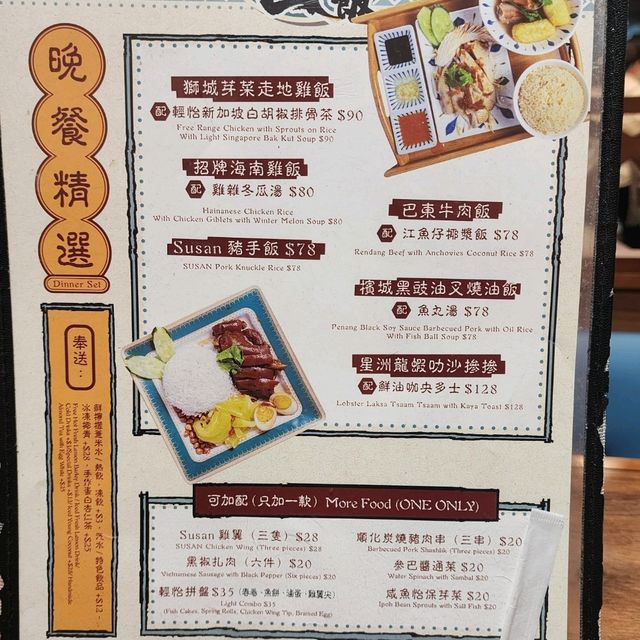 晚餐精選
Dinner Set
奉送：
鮮檸檬薏米水 / 熱飲，凍飲+$3，汽水 / 特色飲品+$12，
冰凍椰青+$28，手作蛋白杏仁茶+$25
獅城芽菜走地雞飯
配 輕怡新加坡白胡椒排骨茶 $90
Free Range Chicken with Sprouts on Rice
With Light Singapore Bak Kut Soup $90
招牌海南雞飯
配 雞雜冬瓜湯 $80
Hainanese Chicken Rice
With Chicken Giblets with Winter Melon Soup $80
Susan 豬手飯 $78
SUSAN Pork Knuckle Rice $78
巴東牛肉飯
配 江魚仔椰漿飯 $78
Rendang Beef with Anchovies Coconut Rice $78
檳城黑豉油叉燒油飯
配 魚丸湯 $78
Penang Black Soy Sauce Barbecued Pork with Oil Rice
With Fish Ball Soup $78
星洲龍蝦叻沙摻摻
配 鮮油咖央多士 $128
Lobster Laksa Tsaam Tsaam with Kaya Toast $128
可加配 (只加一款) More Food (ONE ONLY)
Susan 雞翼 (三隻) $28
SUSAN Chicken Wing (Three pieces) $28
黑椒扎肉 (六件) $20
Vietnamese Sausage with Black Pepper (Six pieces) $20
輕怡拼盤 $35 (春卷、魚餅、滷蛋、雞翼尖)
Light Combo $35
(Fish Cakes, Spring Rolls, Chicken Wing Tip, Braised Egg)
順化炭燒豬肉串 (三串) $20
Barbecued Pork Shashlik (Three pieces) $20
參巴醬通菜 $20
Water Spinach with Sambal $20
咸魚怡保芽菜 $20
Ipoh Bean Sprouts with Salt Fish $20